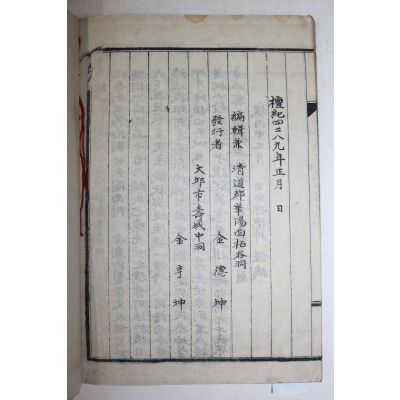 檀紀四二八九年正月 日
編輯兼 淸道郡華陽面栢谷洞
發行者 金德坤
大邱市壽城中洞
金亨坤